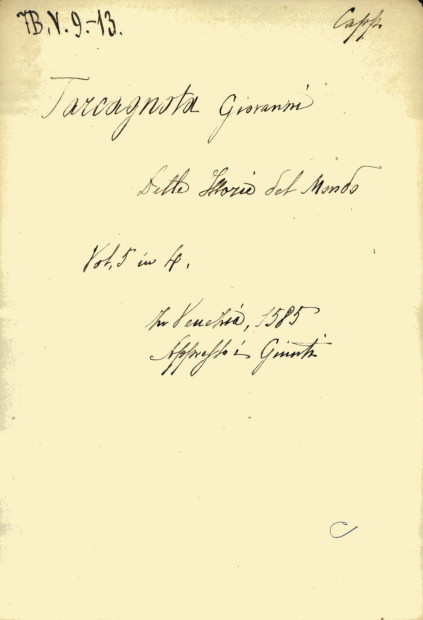 7B.V.9.-13.
Capp.
Tarcagnota Giovanni
Delle Istorie del Mondo
Vol. 5 in 4.
In Venezia, 1585
Appresso i Giunti
C